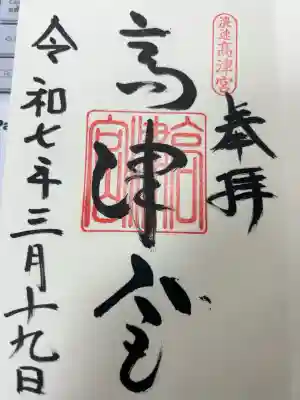 浪速高津宮
奉拝
高津宮
高津宮
令和七年三月十九日